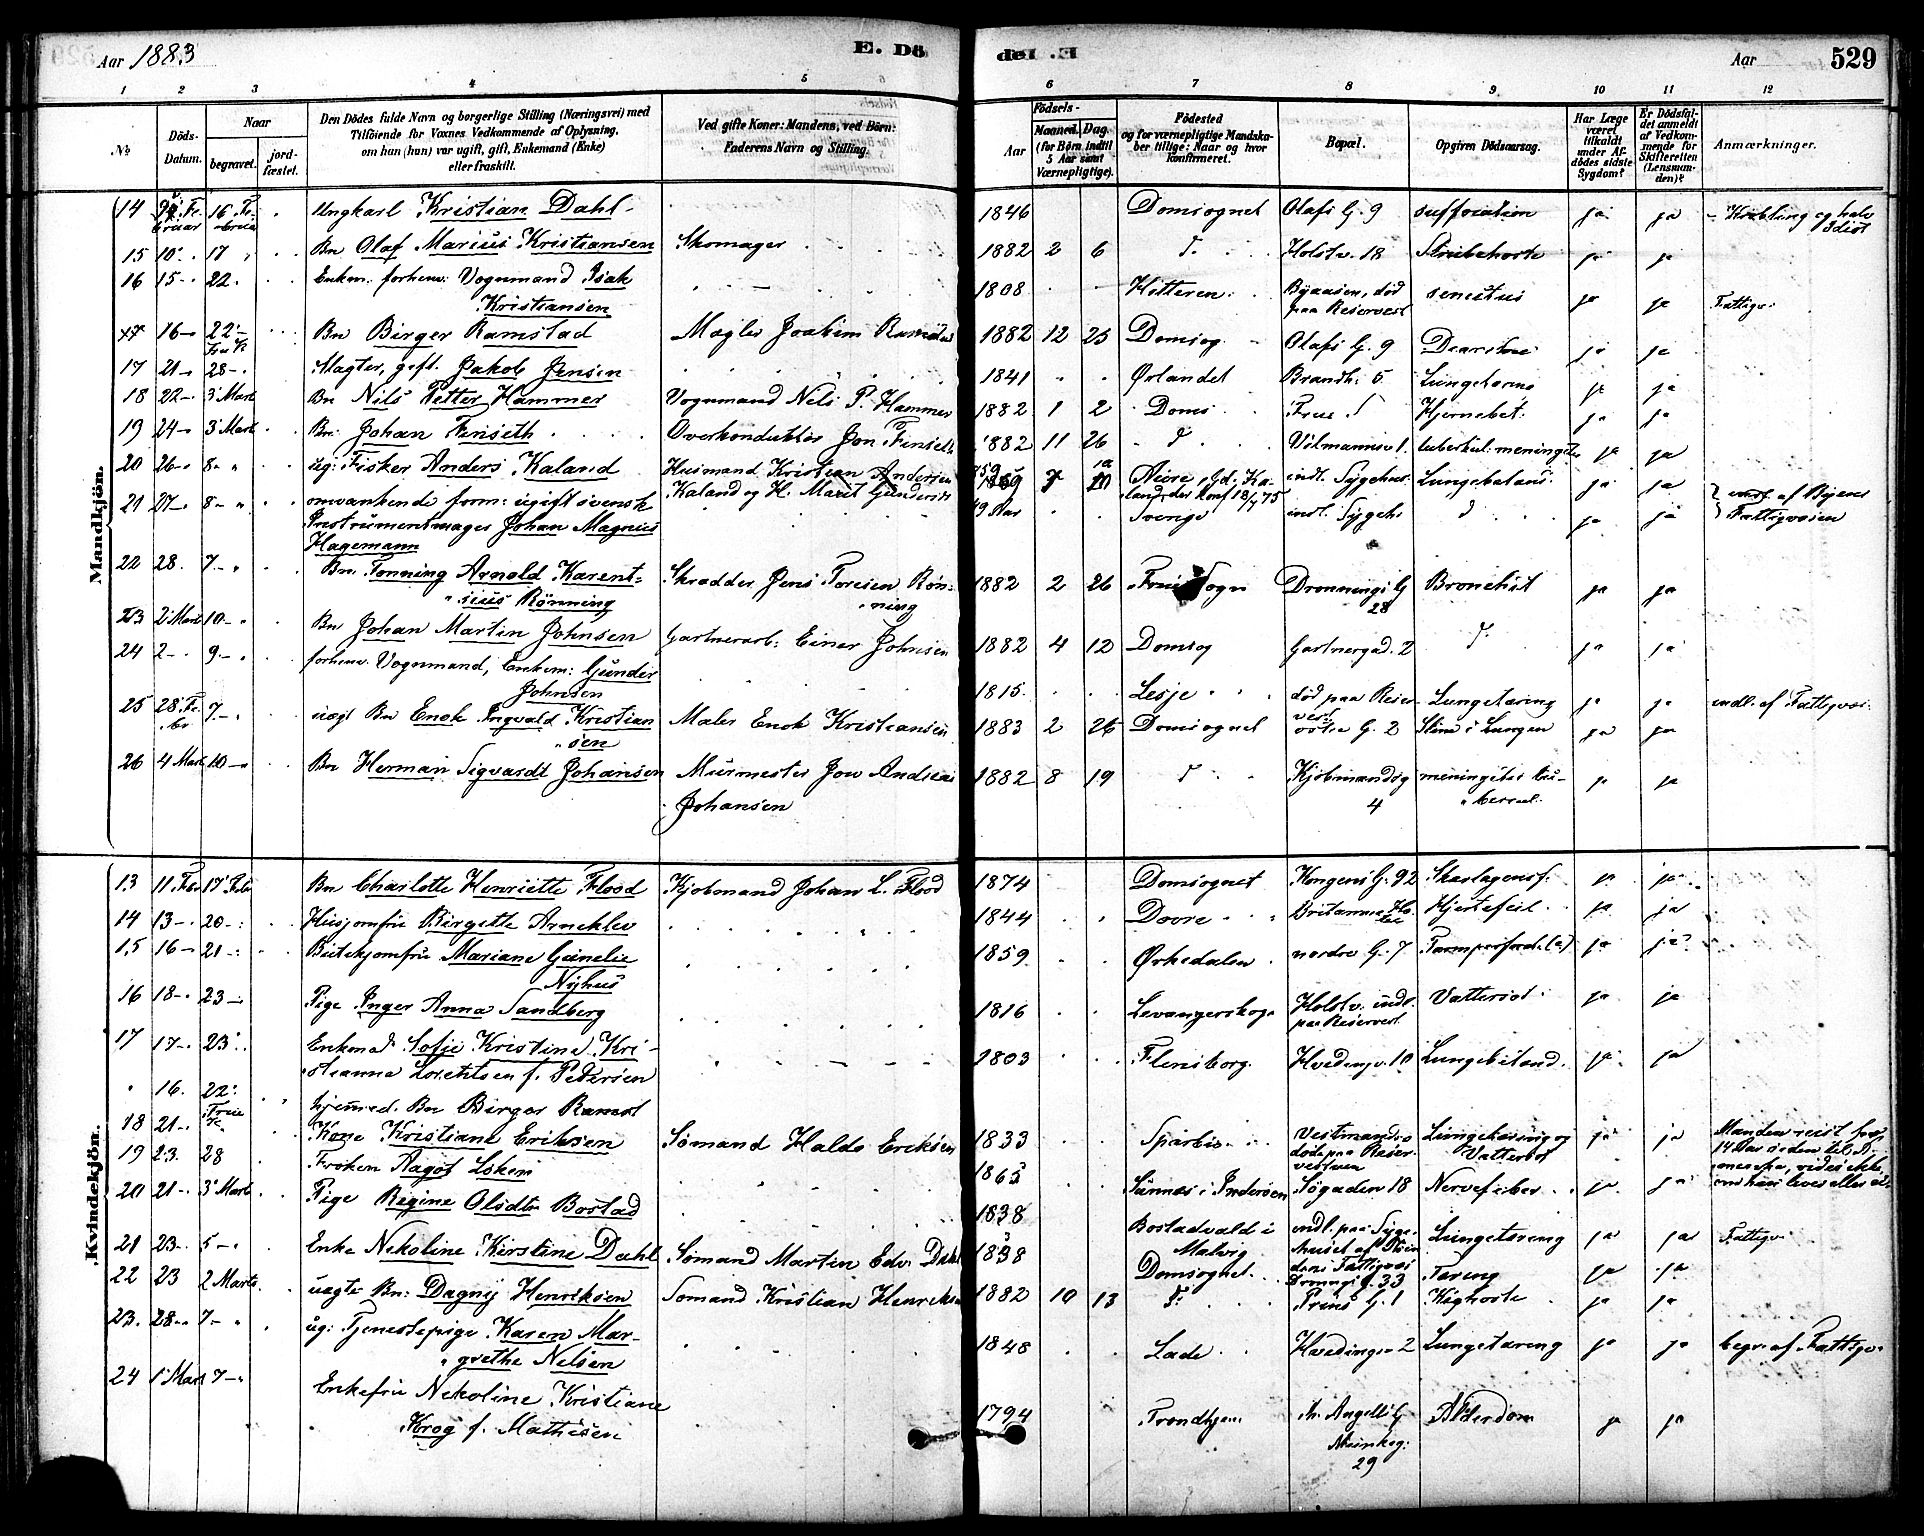 Aar 1883
E. Dö
del E.
Aar
529
1 2 3 4 5
6 7 8 9 10 11 12
No
Döds-
Datum.
Naar
begravet.
jord-
fæstet.
Den Dödes fulde Navn og borgerlige Stilling (Næringsvei) med
Tilföiende for Voxnes Vedkommende af Oplysning,
om han (hun) var ugift, gift, Enkemand (Enke)
eller fraskilt.
Ved gifte Koner: Mandens, ved Börn:
Faderens Navn og Stilling.
Födsels-
Aar
Maaned. Dag.
(for Börn indtil
5 Aar samt
Værnepligtige).
Födested
og for værnepligtige Mandska-
ber tillige: Naar og hvor
konfirmeret.
Bopæl.
Opgiven Dödsaarsag.
Har Læge
været
tilkaldt
under Af-
dödes sidste
Sygdom?
Er Dödsfal-
det anmeldt
af Vedkom-
mende for
Skifteretten
(Lensman-
den)?
Anmærkninger.
Mandkjön.
14 16 Fe- bruar Ungkarl Kristian Dahl 1846 Domsognet Olafs G. 9 suffocation ja ja Krøbling og halv Idiot
15 10 17 Bn Olaf Marius Kristiansen Skomager 1882 2 6 d. Holstv. 18 Strubehoste ja ja
16 15 22 Enkem. forhenv. Vognmand Isak
Kristiansen 1808 Hitteren Byaasen, død
paa Reservest senectus ja ja Fattigv.
16 22 Bn Birger Ramstad Mægler Joakim Ramstad 1882 12 25 Domsog. Olafs G. 9 ja ja
17 21 28 Slagter, gift. Jakob Jensen 1841 Ørlandet Brandh. 5 Lungetæring ja ja
18 22 3 Marts Bn Nils Petter Hammer Vognmand Nels P. Hammer 1882 1 2 Doms Hjernebet. ja ja
19 24 3 Marts Bn Johan Finseth Overkonduktør Jon Finseth 1882 11 26 d Vilmannsv 1. tuberkul. meningitis ja ja
20 26 8 ug. Fisker Anders Kaland Husmand Kristian Andersen
Kaland og H. Marit Gundersd indl. Sygehus. Lungebetænd. ja ja
21 27 8 omvankende form. ugift svensk
Instrumentmager Johan Magnus
Hagemann 49 Aar Sverige indl. Sygeh. d ja ja af Byens
Fattigvæsen
22 28 7 Bn Tønning Arnold Karent-
sius Rønning Skrædder Jens Toresen Røn-
ning 1882 2 26 Frue Sogn Dronnings G
28 Bronchit ja ja
23 2 Marts 10 Bn Johan Martin Johnsen Gartnerarb. Einer Johnsen 1882 4 12 Domsog Gartnergad. 2 d. ja ja
24 2 9 forhenv. Vognmand, Enkem: Gunder
Johnsen 1815 Lesje død paa Reser-
vest. Lungetæring ja ja indl. af Fattigvæs.
25 28 Fe-
br 7 uægt Bn Enok Ingvald Kristian
sen Maler Enok Kristiansen 1883 2 26 Domsognet østre G. 2 Slim i Lungen ja ja
26 4 Marts 10 Bn Herman Sigvardt Johansen Murmester Jon Andreas
Johansen 1882 8 19 d Kjøbmandsg
4 meningitis tu-
bercul. ja ja
Kvindekjön.
13 11 Feb 17 Feb Bn Charlotte Henriette Flood Kjøbmand Johan L. Flood 1874 Domsognet Kongens G. 92 Skarlagensf. ja ja
14 13 20 Husjomfru Birgitte Arneklev 1844 Dovre Britannia Ho-
tel Hjertefeil ja ja
15 16 21 Butikjomfru Mariane Gunelie
Nyhus 1859 Orkedalen nordre G. 7 Tarmperforat. (a) ja ja
16 18 23 Pige Inger Anna Sandberg 1816 Levangerskog. Holstv. indl.
paa Reservest. Vattersot ja ja
17 17 23 Enkemad. Sofie Kristine Kri-
stianna Lorentsen f. Pedersen 1803 Flensborg. Hvedingv. 10 Lungebetænd. ja ja
16. 22 hjemmed. Bn Birger Ramst
18 21 Kone Kristiane Eriksen Sømand Haldo Eriksen 1833 Sparbu Vestmandso
døde paa Reser-
vestuen Lungetæring og
Vattersot ja ja Manden reist for
14 Aar siden til A-
merika, vides ikke
om han lever eller ei.
19 23 28 Frøken Aagot Løken 1865 Sunnæs i Inderøen Søgaden 18 Nervefeber ja ja
20 21 3 Marts Pige Regine Olsdtr Bostad 1838 Bostadvald i
Malvig indl. paa Syge-
huset Lungetæring ja ja Fattigv.
21 23 5 Enke Nekoline Kirstine Dahl Sømand Martin Edv. Dahl 1838 Domsognet Dronngs G. 33 Tæring ja ja
22 23 2 Marts uægte Bn: Dagny Henriksen Sømand Kristian Henriksen 1882 10 13 d. Prins G. 1 Kighoste ja ja
23 28 7 ug: Tjenestepige Karen Mar-
grethe Nelsen 1848 Lade Hvedingsv 2 Lungetæring ja ja begr. af Fattigv.
24 1 Marts 7 Enkefru Nekoline Kristiane
Krog f. Mathisen 1794 Trondhjem Th. Angells G
Munkeg:
29 Alderdom ja ja